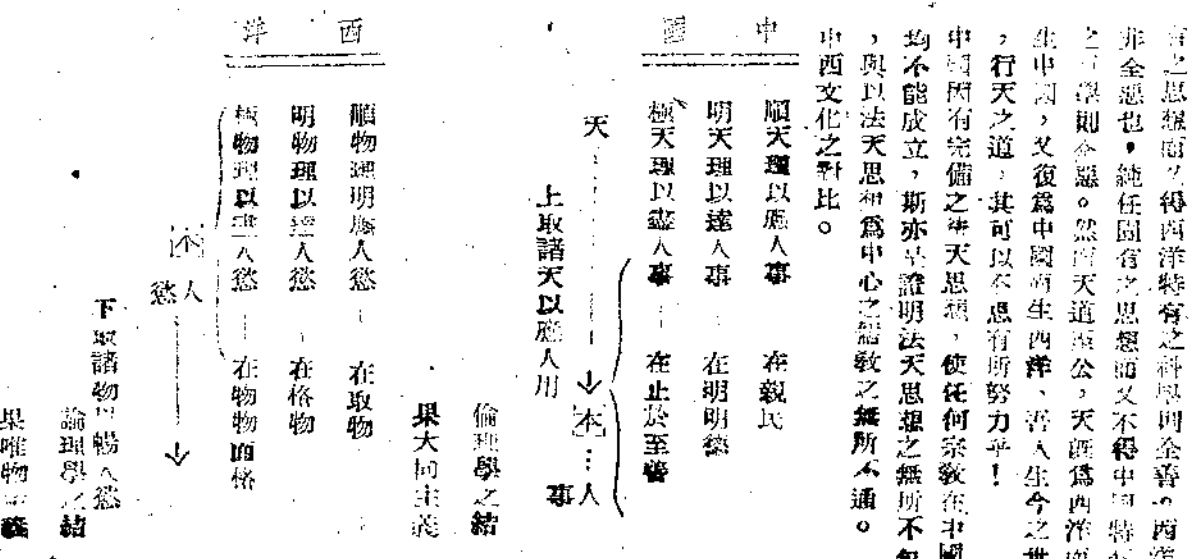 有之思想而又得西洋特有之科學則全善。西洋
非全惡也,純任固有之思想而又不得中國特
之 學則全惡。然而天道至公,天旣爲西洋
生中國,又復爲中國而生西洋、吾人生今之世
,行天之道,其可以不思有所努力乎!
中國因有完備之法天思想,使任何宗敎在中國
均不能成立,斯亦足證明法天思想之無所不包
,與以法天思想爲中心之倫敎之無所不通。
中西文化之對比。
中國
順天理以應人事 在親民
明天理以達人事 在明明德
極天理以盡人事 在止於至善
天 本 人事
上取諸天以應人用
倫理學之結
果大同主義
西洋
順物理明應人慾 在取物
明物理以達人慾 在格物
極物理以盡人慾 在物物而格
本 人慾
下取諸物以暢人慾
論理學之結
果唯物主義